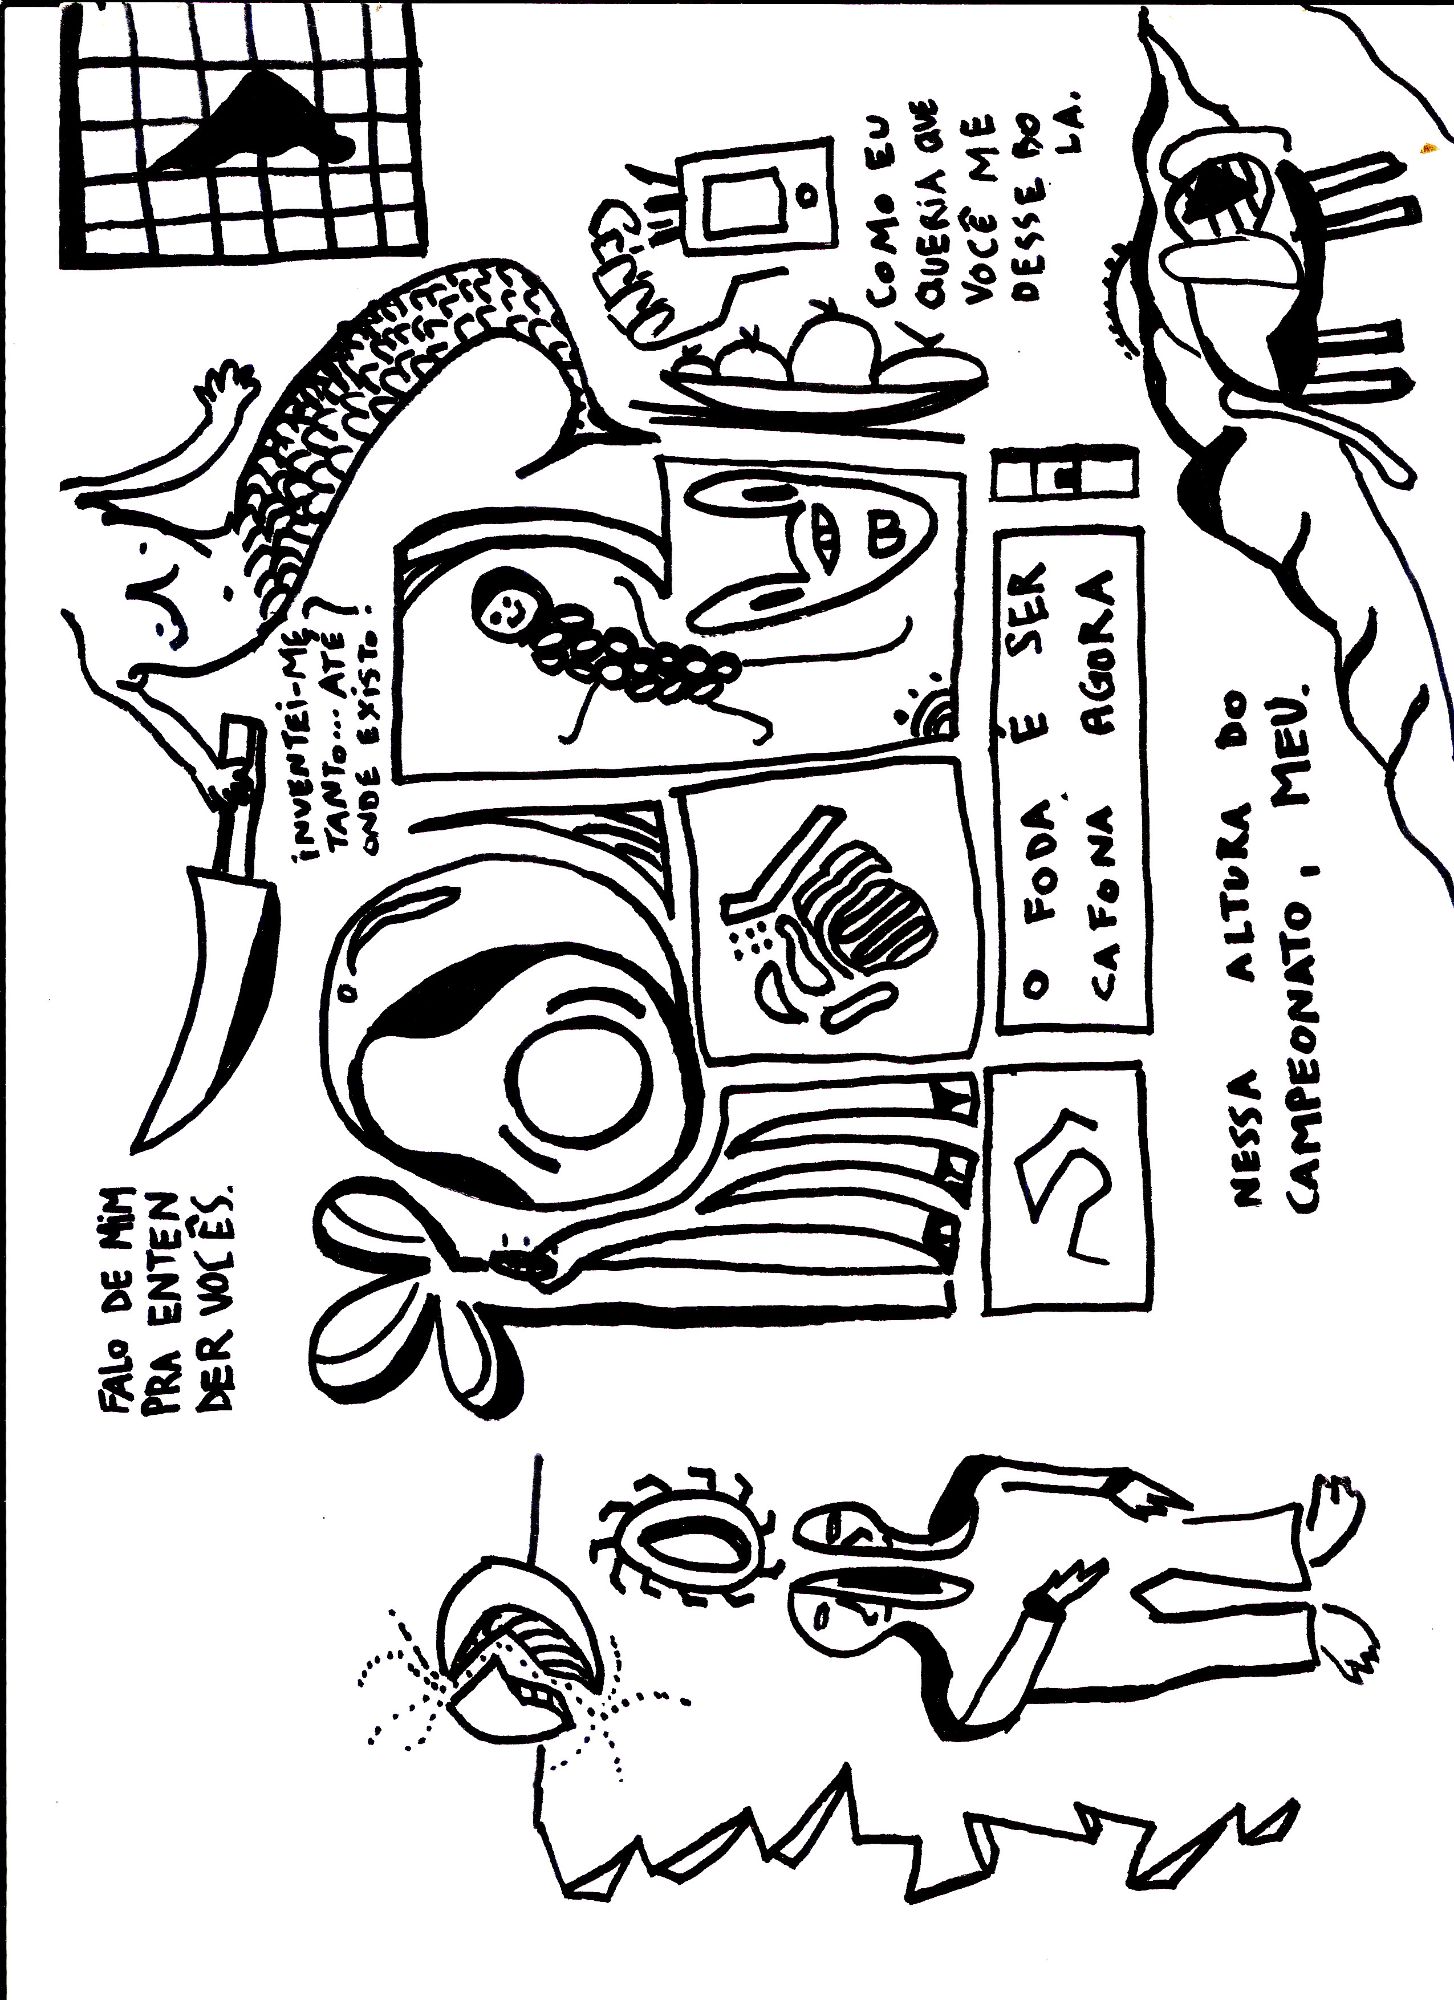 FALO DE MIM
PRA ENTEN
DER VOCÊS.
INVENTEI-ME
TANTO... ATÉ
ONDE EXISTO?
COMO EU
QUERIA QUE
VOCÊ ME
DESSE BO
LA.
B
O FODA É SER
CAFONA AGORA
NESSA ALTURA DO
CAMPEONATO, MEU.